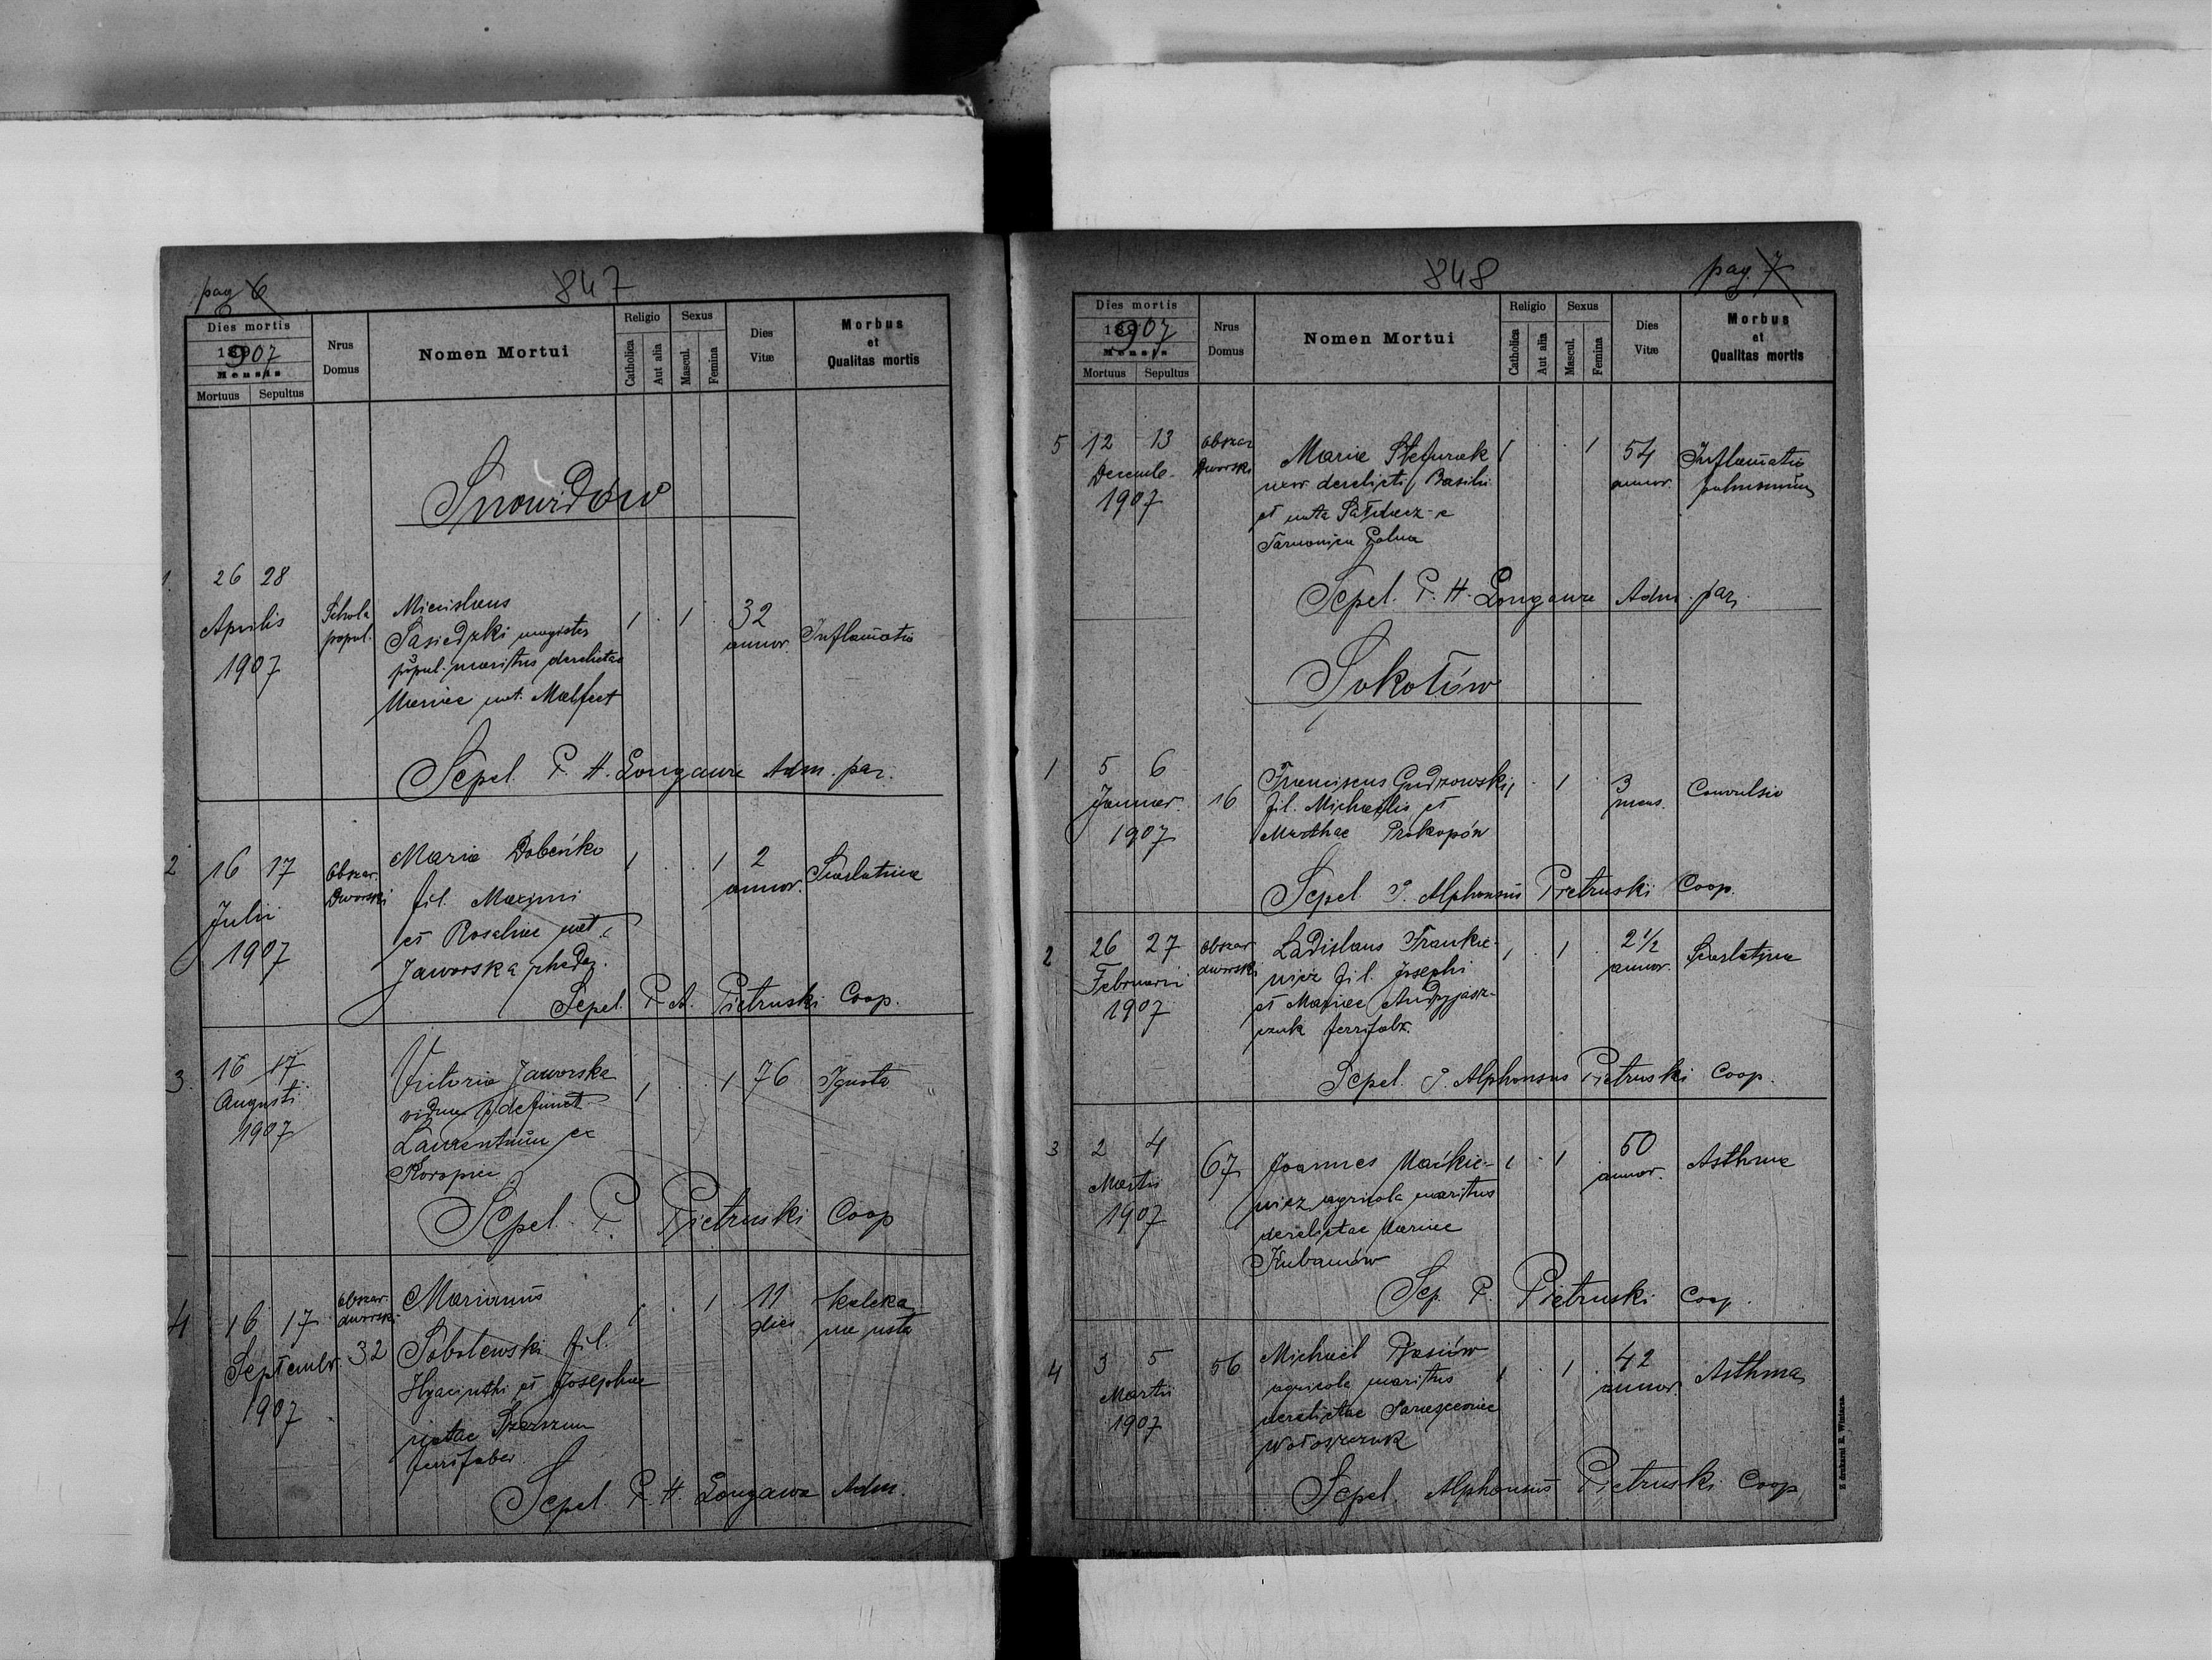 pag 6
847
Dies mortis
1907
Mensis
Mortuus Sepultus
Nrus Domus
Nomen Mortui
Religio
Catholica
Aut alia
Sexus
Mascul.
Femina
Dies Vitæ
Morbus et Qualitas mortis
Snowidów
1 26 28
Aprilis
1907
Schola
popul.
Mieceslaus
Sasiedzki magister
popul. maritus derelictae
Mariae nat. Malfect
1 1
32
annor.
Inflamatio
Sepel. P. H. Longawa Adm. par.
2 16 17
Julii
1907
Obszar
Dworski
Maria Dobeńko
fil. Maximi
et Rosaliae nat.
Jaworska rhedar.
1 1
2
annor.
Scarlatina
Sepel. P. A. Pietruski Coop.
3. 16 17
Augusti
1907
Victoria Jaworska
vidua p. defunct.
Laurentium ex
Koropiec
1 1
76
Ignota
Sepel. P. Pietruski Coop
4 16 17
Septembr.
1907
obszar
dworski
32
Marianus
Sobolewski fil.
Hyacinthi et Josephae
natae
ferrifaber
1 1
11
dies
kaleka
na usta
Sepel. P. H. Longawa Adm.
848
pag. 7
Dies mortis
1907
Mensis
Mortuus Sepultus
Nrus Domus
Nomen Mortui
Religio
Catholica
Aut alia
Sexus
Mascul.
Femina
Dies Vitæ
Morbus et Qualitas mortis
5 12 13
Decemb.
1907
Obszar
Dworski
Maria Stefurak
uxor derelicti Basilii
et nata
Tarnawica Polna
1 1
54
annor.
Inflamatio
pulmonum
Sepel. P. H. Longawa Adm. par.
Sokołów
1 5 6
Januar.
1907
16
Franciscus Gudzowski
fil. Michaelis et
Marthae Prokopów
1 1
3
mens.
Convulsio
Sepel. P. Alphonsus Pietruski Coop.
2 26 27
Februarii
1907
obszar
dworski
Ladislaus Frankie-
wicz fil. Josephi
et Mariae Andryjasz-
czuk ferrifabr.
1 1
2 1/2
annor.
Scarlatina
Sepel. P. Alphonsus Pietruski Coop.
3 2 4
Martii
1907
67
Joannes Maćkie-
wicz agricola maritus
derelictae Mariae
Kubanów
1 1
50
annor.
Asthma
Sep. P. Pietruski Coop.
4 3 5
Martii
1907
56
Michael
agricola maritus
derelictae Parasceviae
Wołoszczuk
1 1
42
annor.
Asthma
Sepel. Alphonsus Pietruski Coop
Z drukarni E. Winiarza
Liber Mortuorum